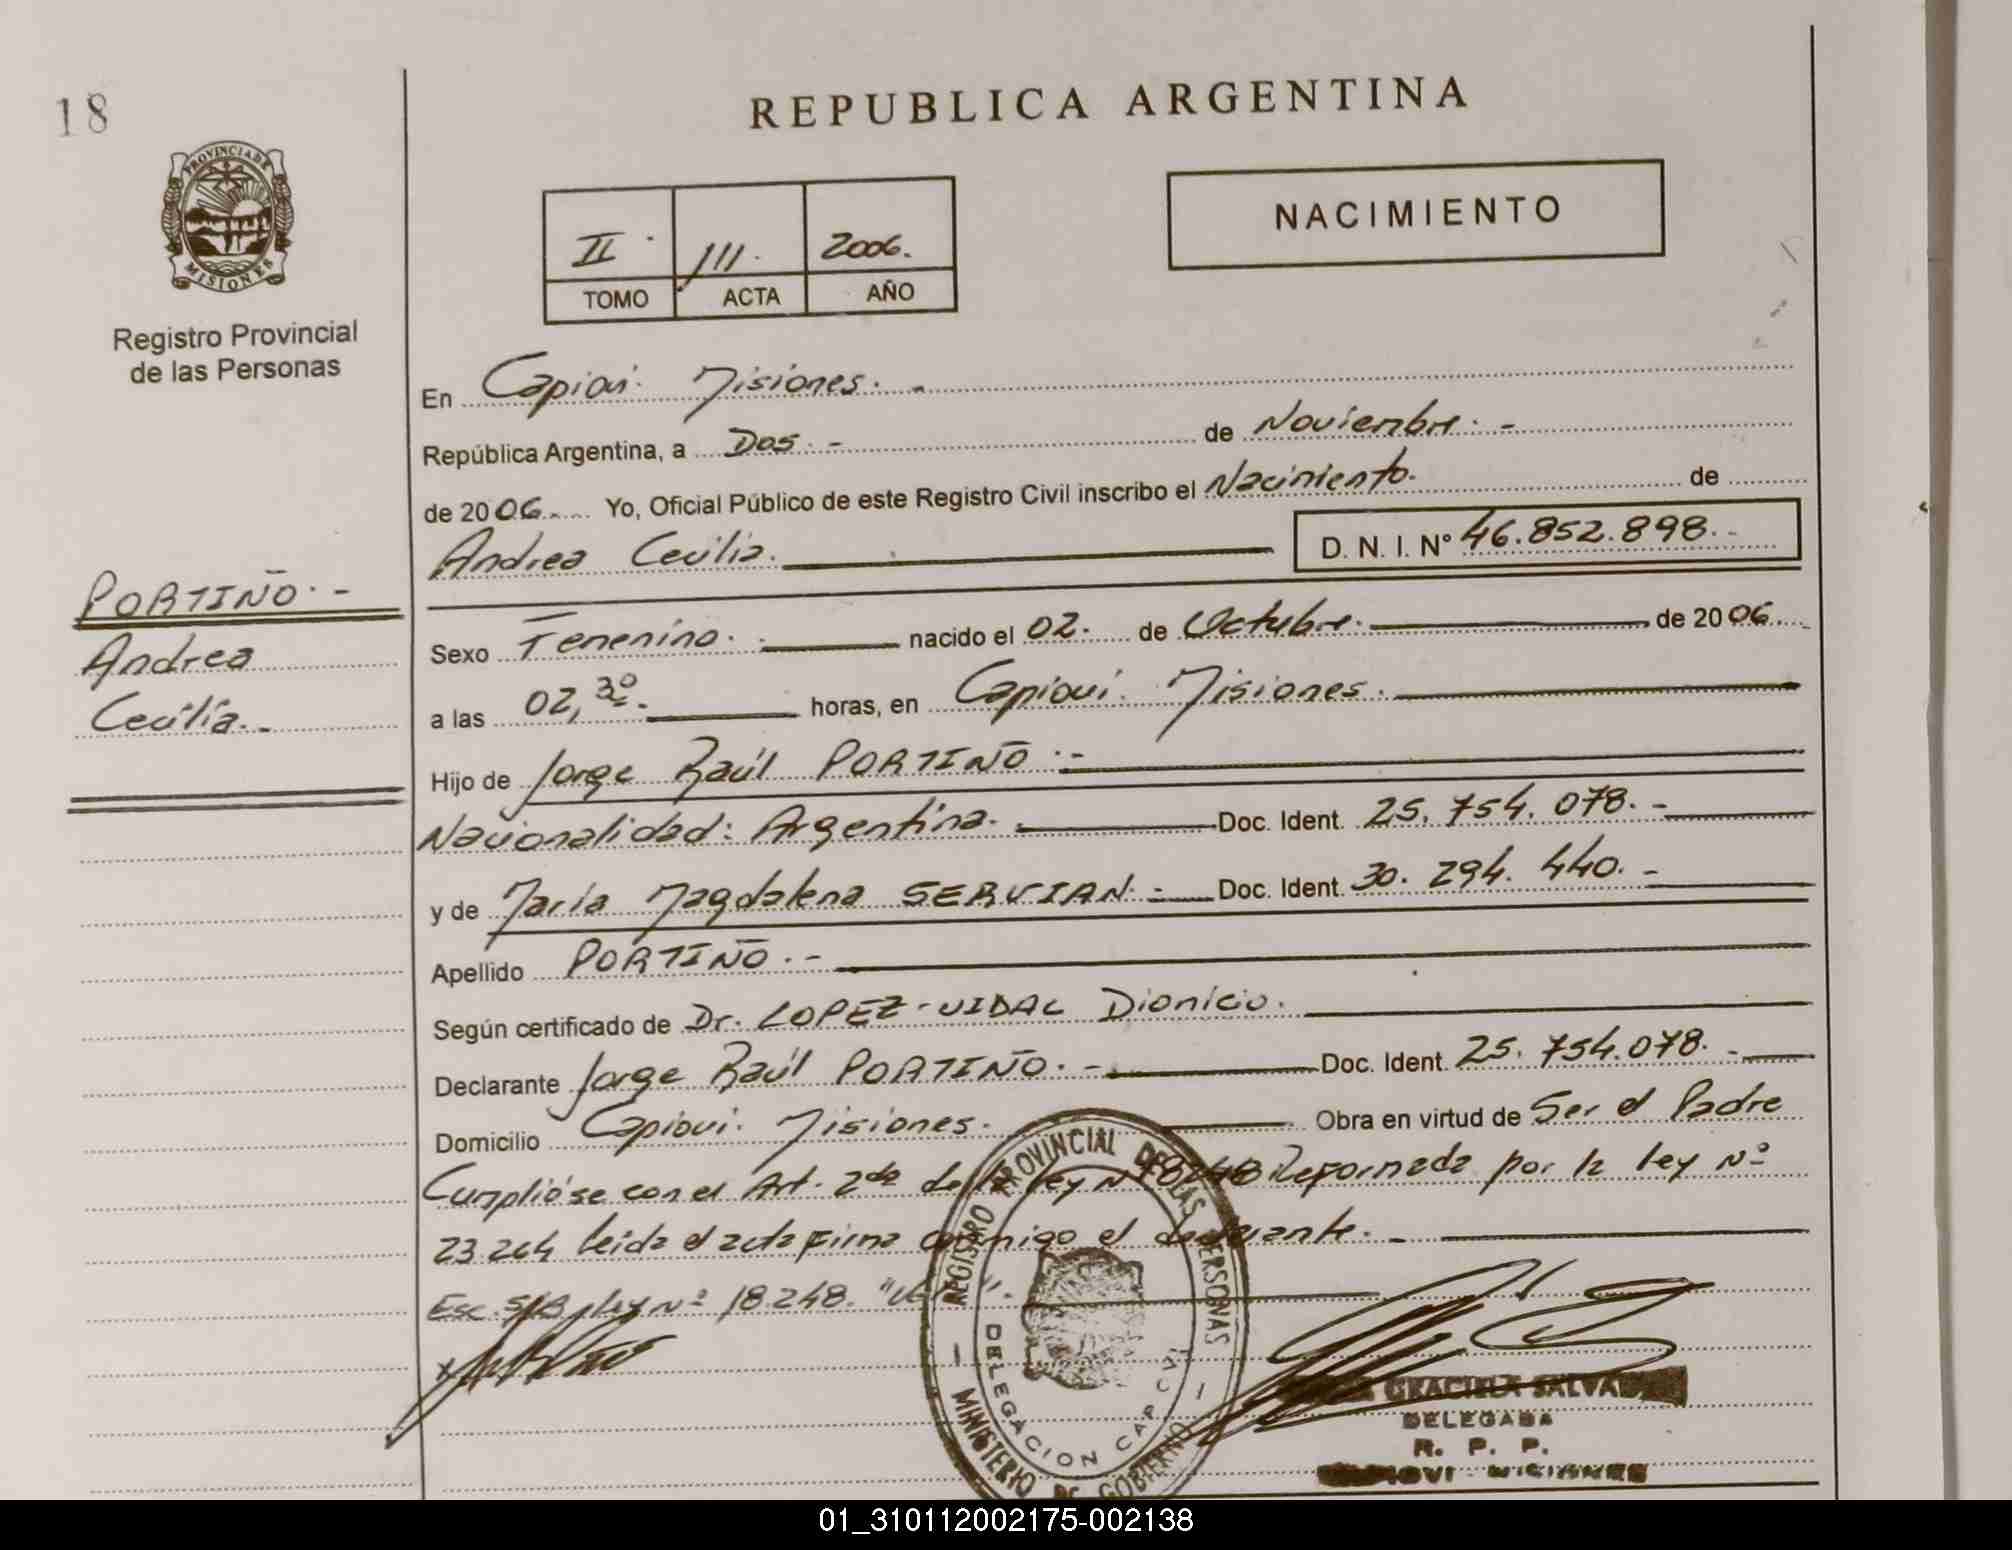 18
REPUBLICA ARGENTINA
PROVINCIA DE MISIONES
Registro Provincial
de las Personas
NACIMIENTO
II. 111. 2006.
TOMO ACTA AÑO
En Capiovi. Misiones. -
República Argentina, a Dos. - de Noviembre. -
de 2006. Yo, Oficial Público de este Registro Civil inscribo el Nacimiento. de
Andrea Cecilia. D. N. I. Nº 46.852.898.-
PORTIÑO. -
Andrea
Cecilia. -
Sexo Femenino. nacido el 02. de Octubre. de 2006.
a las 02,30. horas, en Capiovi. Misiones.
Hijo de Jorge Raúl PORTIÑO. -
Nacionalidad: Argentina. Doc. Ident. 25.754.078. -
y de María Magdalena SERVIAN. - Doc. Ident. 30.294.440. -
Apellido PORTIÑO. -
Según certificado de Dr. LOPEZ-VIDAL Dionicio.
Declarante Jorge Raúl PORTIÑO. - Doc. Ident. 25.754.078. -
Domicilio Capiovi. Misiones. Obra en virtud de Ser el Padre
Cumplióse con el Art. 2do de la ley Nº 18248 Reformada por la ley Nº
23.264 leída el acta firma conmigo el declarante. -
Esc. S/B ley Nº 18.248.
REGISTRO PROVINCIAL DE LAS PERSONAS
MINISTERIO DE GOBIERNO
DELEGACION CAPIOVI
GRACIELA
DELEGADA
R. P. P.
CAPIOVI - MISIONES
01_310112002175-002138